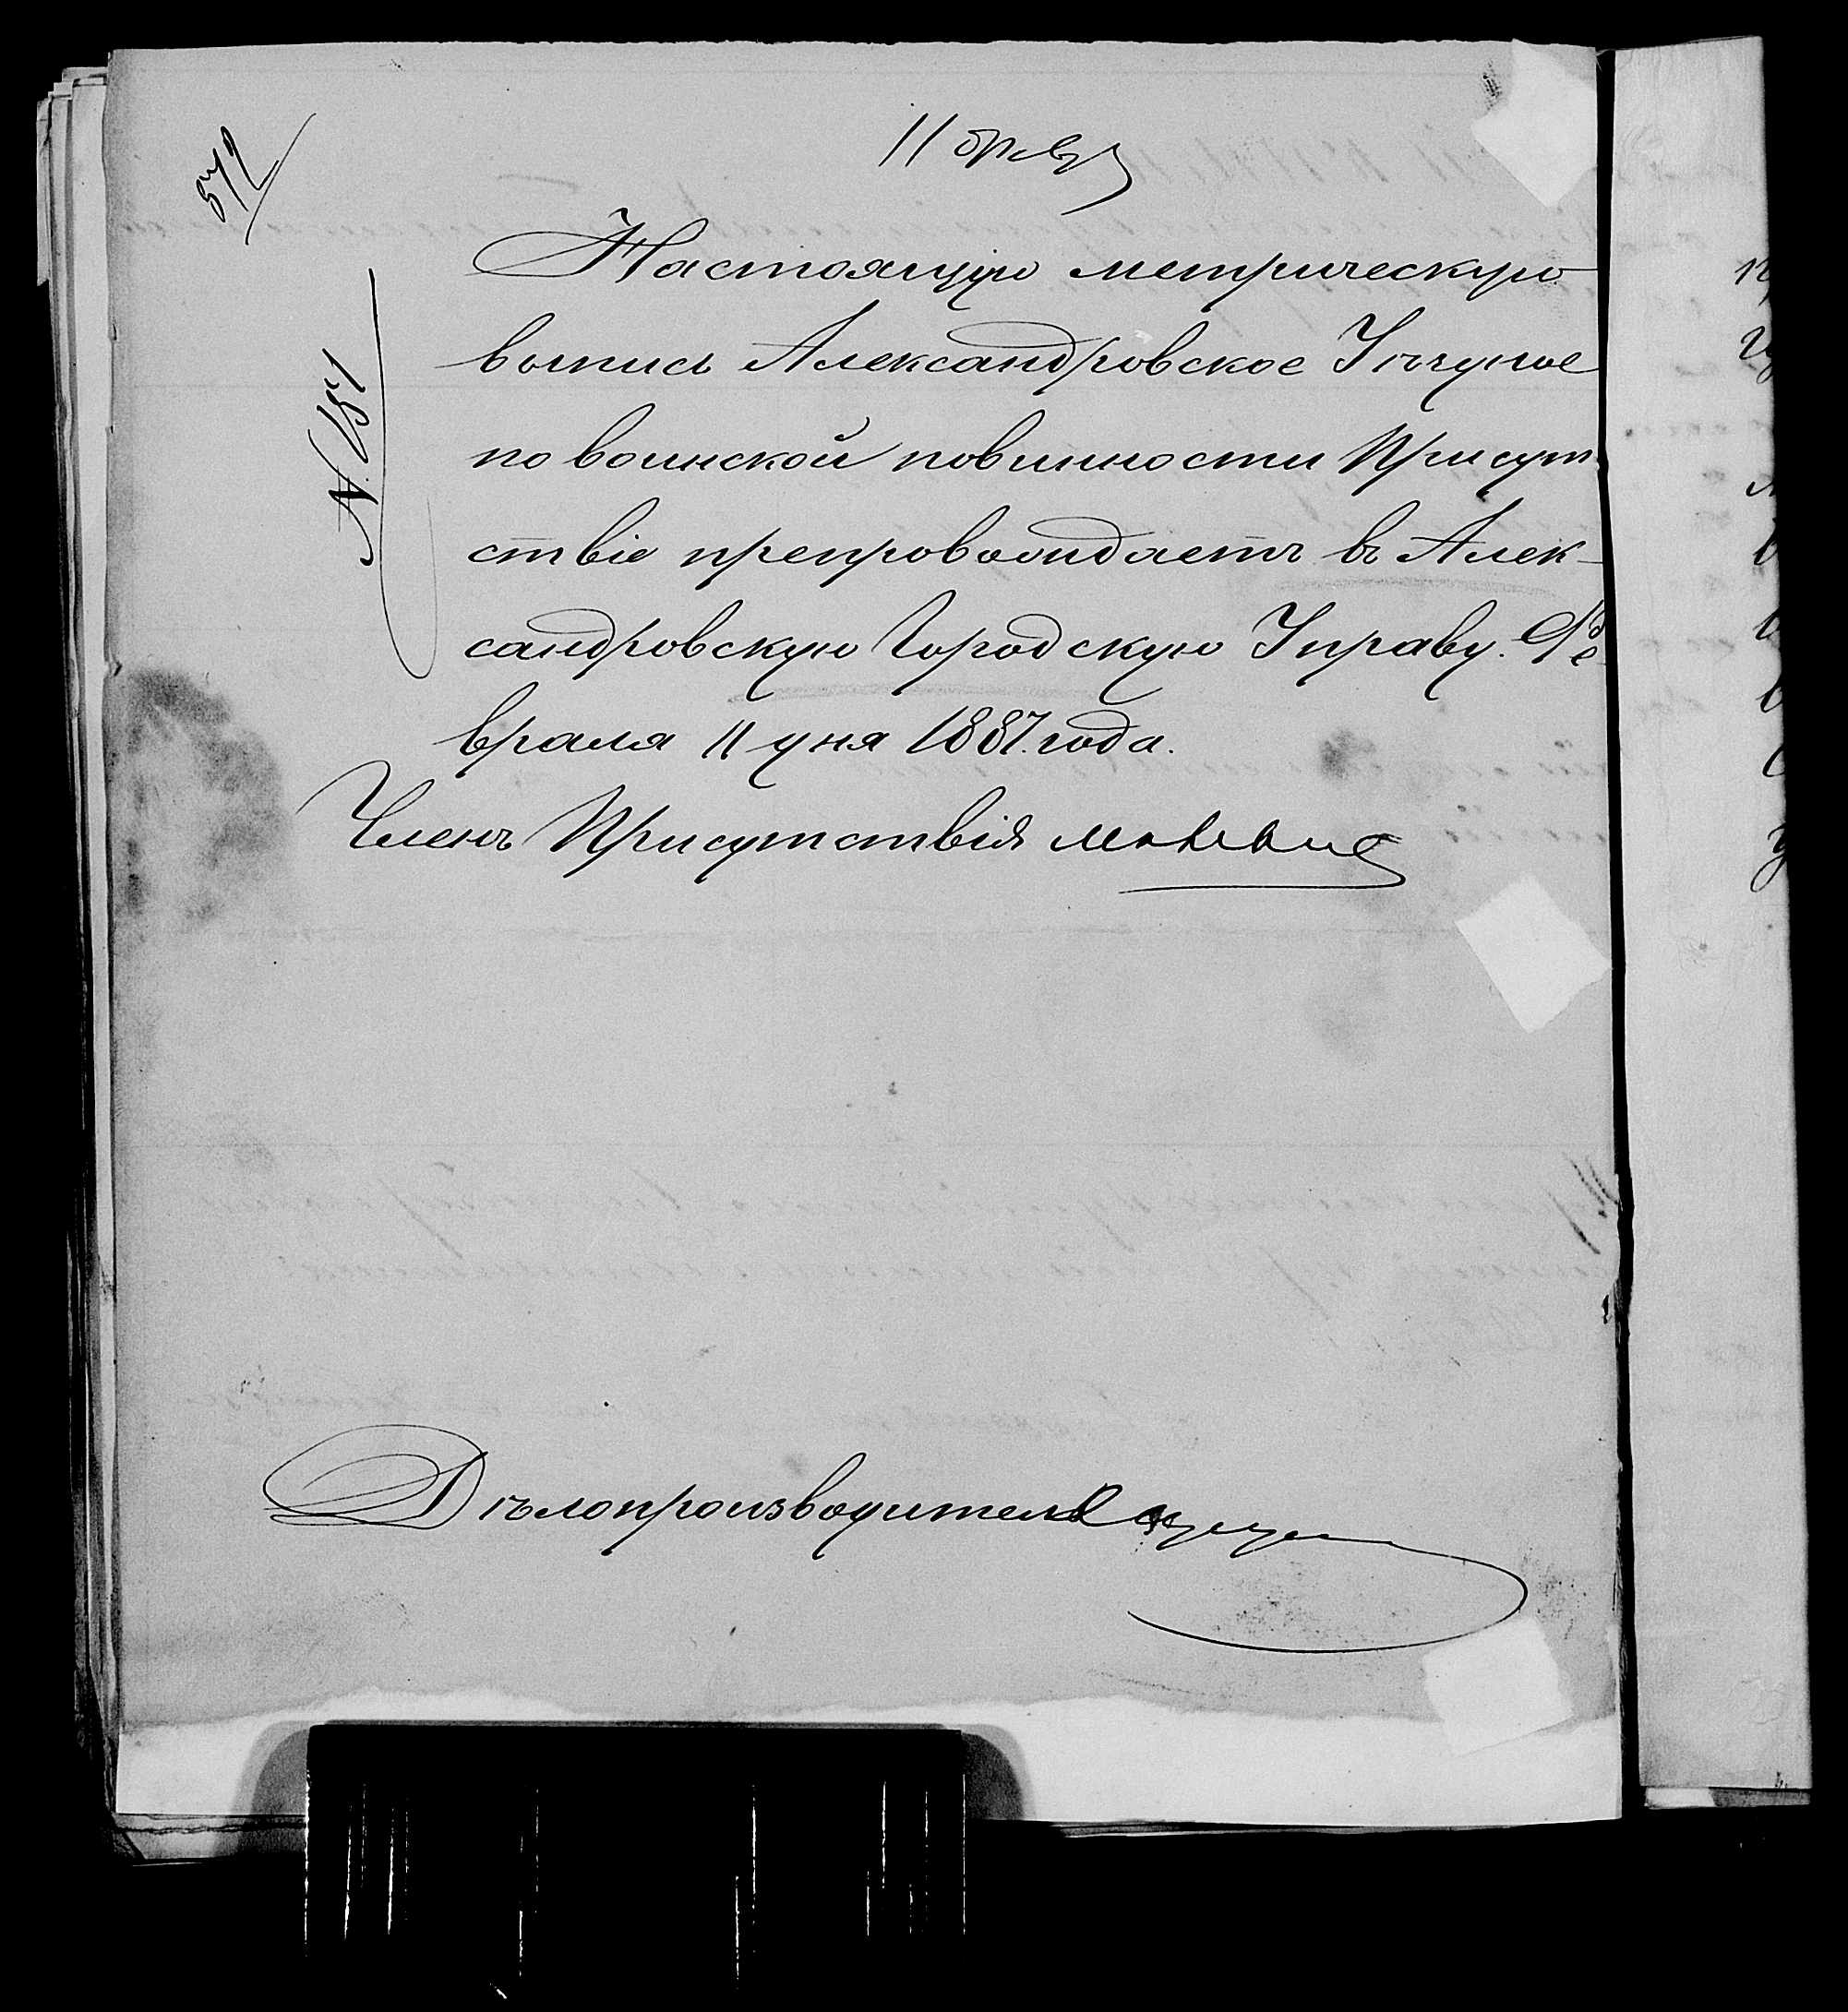 11 февр
572
Настоящую метрическую
выпись Александровское Уѣздное
N. 151
по воинской повинности Присут-
ствіе препровождаетъ въ Алек-
сандровскую Городскую Управу. Фе
враля 11 дня 1887. года.
Членъ Присутствія
Дѣлопроизводитель